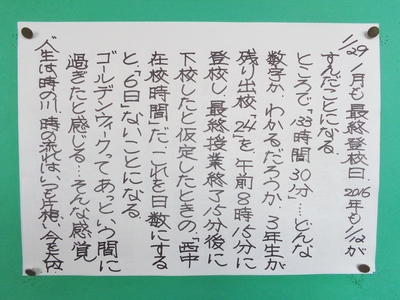 1/29 1月も最終登校日。2016年も1/12が
すんだことになる
ところで「133時間30分」…どんな
数字か、わかるだろうか 3年生が
残り出校「24」を、午前8時15分に
登校し、最終授業終了15分後に
下校したと仮定したときの、「西中
在校時間」だ。これを日数にする
と、「6日」ないことになる
ゴールデンウィークってあっという間に
過ぎたと感じる…そんな感覚
"人生は時の川、時の流れはいつも片想い、今を大切